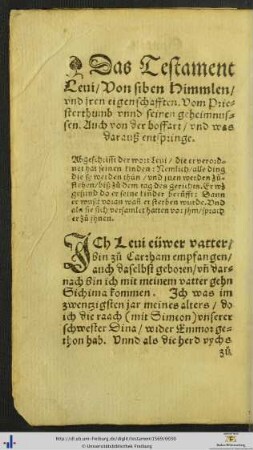 Das Testament
Leui/ Von siben Himmlen/
vnd jren eigenschafften. Vom Prie-
sterthumb vnnd seinen geheimnus-
sen. Auch von der hoffart/ vnd was
darauß entspringe.
Abgeschrifft der wort Leui/ die er verord-
net hat seinen kinden: Nemlich/ alle ding
die sie werden thůn/ vnd jnen werden zů-
stehen/ biß zů dem tag des gerichts. Er wz
gesund do er seine kinder berůfft: Dann
er wußt woran was er sterben wurde. Vnd
als sie sich versamlet hatten vor jhm/ sprach
er zů jhnen.
JCh Leui eüwer vatter/
bin zů Carrham empfangen/
auch daselbst geboren/ vñ dar-
nach bin ich mit meinem vatter gehn
Sichima kommen. Ich was im
zwentzigsten jar meines alters/ do
ich die raach (mit Simeon) vnserer
schwester Dina/ wider Emmor ge-
thon hab. Vnnd als die herd vychs
zů
http://dl.ub.uni-freiburg.de/diglit/testament1569/0030
© Universitätsbibliothek Freiburg